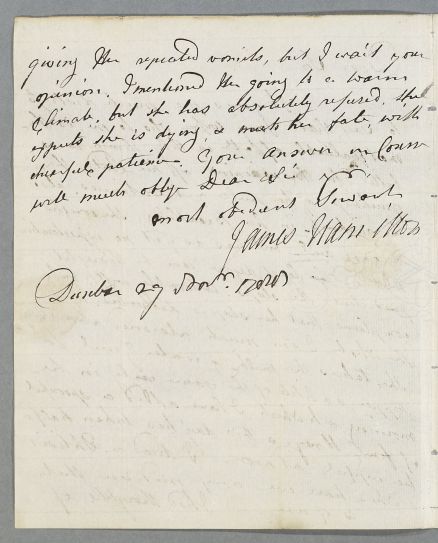 giving her repeated vomits, but I wait your
opinion. I mentioned her going to a warm
Climate, but she has absolutely refused. She
expects she is dying, & meets her fate, with
chearful patience. Your answer in Course
will much oblige Dear Sir Your
most obedient Servant
James Hamilton
Dunbar 29 Novr.